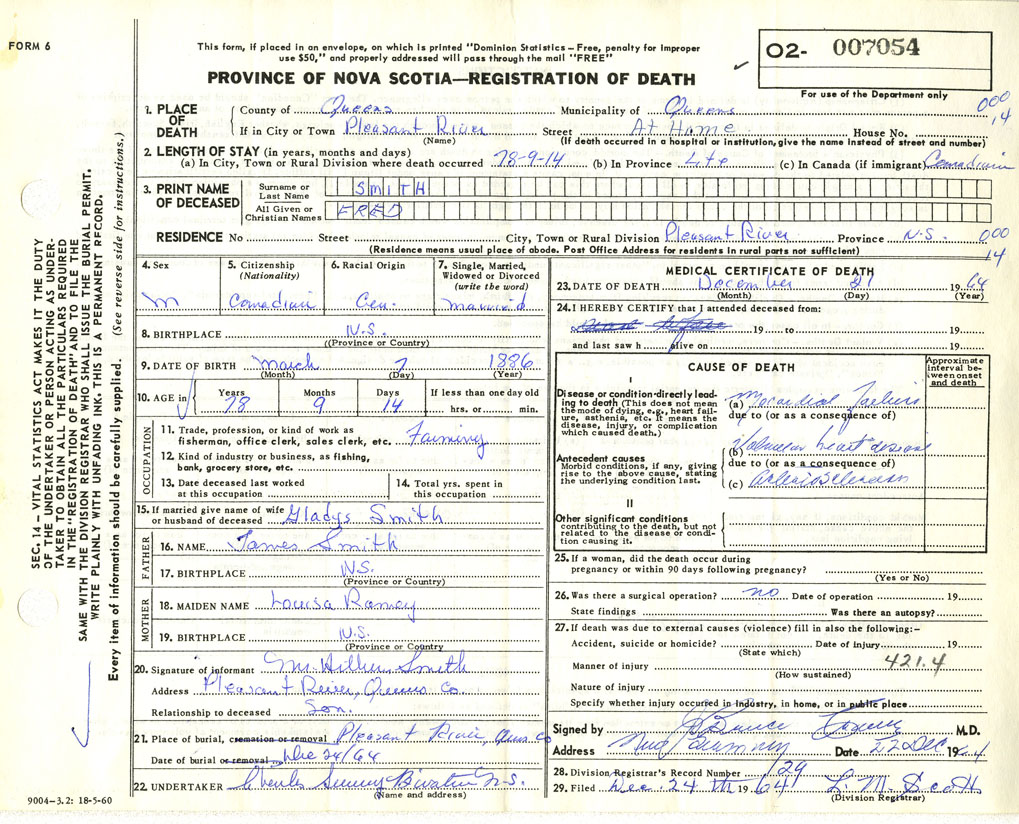 FORM 6
This form, if placed in an envelope, on which is printed "Dominion Statistics – Free, penalty for improper
use $50," and properly addressed will pass through the mail "FREE"
PROVINCE OF NOVA SCOTIA—REGISTRATION OF DEATH
O2- 007054
For use of the Department only
000
14
1. PLACE OF DEATH County of Queens Municipality of Queens
If in City or Town Pleasant River Street At Home House No.
(Name) (If death occurred in a hospital or institution, give the name instead of street and number)
2. LENGTH OF STAY (in years, months and days)
(a) In City, Town or Rural Division where death occurred 78-9-14 (b) In Province Life (c) In Canada (if immigrant) Canadian
3. PRINT NAME OF DECEASED
Surname or Last Name SMITH
All Given or Christian Names FRED
RESIDENCE No Street City, Town or Rural Division Pleasant River Province N.S. 000
(Residence means usual place of abode. Post Office Address for residents in rural parts not sufficient) 14
4. Sex
M
5. Citizenship (Nationality)
Canadian
6. Racial Origin
Ger.
7. Single, Married, Widowed or Divorced (write the word)
married
8. BIRTHPLACE N.S.
((Province or Country)
9. DATE OF BIRTH March 7 1886
(Month) (Day) (Year)
10. AGE in Years Months Days If less than one day old
78 9 14 hrs. or min.
OCCUPATION
11. Trade, profession, or kind of work as
fisherman, office clerk, sales clerk, etc. Farming
12. Kind of industry or business, as fishing,
bank, grocery store, etc.
13. Date deceased last worked
at this occupation
14. Total yrs. spent in
this occupation
15. If married give name of wife
or husband of deceased Gladys Smith
FATHER
16. NAME James Smith
17. BIRTHPLACE N.S.
(Province or Country)
MOTHER
18. MAIDEN NAME Louisa Ramey
19. BIRTHPLACE N.S.
(Province or Country
20. Signature of informant Mr. Smith
Address Pleasant River, Queens Co.
Relationship to deceased Son.
21. Place of burial, cremation or removal Pleasant River, Queens Co
Date of burial or removal Dec 24/64
22. UNDERTAKER Charles N.S.
(Name and address)
9004–3.2: 18-5-60
MEDICAL CERTIFICATE OF DEATH
23. DATE OF DEATH December 21 1964
(Month) (Day) (Year)
24. I HEREBY CERTIFY that I attended deceased from:
19 to 19
and last saw h alive on 19
CAUSE OF DEATH
Approximate interval between onset and death
I
Disease or condition directly leading
to death (This does not mean
the mode of dying, e.g., heart failure,
asthenia, etc. It means the
disease, injury, or complication
which caused death.)
(a) Myocardial Failure
due to (or as a consequence of)
(b) Valvular heart disease
due to (or as a consequence of)
(c) Arteriosclerosis
Antecedent causes
Morbid conditions, if any, giving
rise to the above cause, stating
the underlying condition last.
II
Other significant conditions
contributing to the death, but not
related to the disease or condition
causing it.
25. If a woman, did the death occur during
pregnancy or within 90 days following pregnancy?
(Yes or No)
26. Was there a surgical operation? no Date of operation 19
State findings Was there an autopsy?
27. If death was due to external causes (violence) fill in also the following:–
Accident, suicide or homicide? Date of injury 19
(State which)
Manner of injury 421.4
(How sustained)
Nature of injury
Specify whether injury occurred in industry, in home, or in public place
Signed by M.D.
Address Date 22 Dec 1964
28. Division Registrar's Record Number 129
29. Filed Dec. 24th 1964 L. M. Scott
(Division Registrar)
SEC. 14 – VITAL STATISTICS ACT MAKES IT THE DUTY
OF THE UNDERTAKER OR PERSON ACTING AS UNDER-
TAKER TO OBTAIN ALL THE PARTICULARS REQUIRED
IN THE "REGISTRATION OF DEATH" AND TO FILE THE
SAME WITH THE DIVISION REGISTRAR WHO SHALL ISSUE THE BURIAL PERMIT.
WRITE PLAINLY WITH UNFADING INK. THIS IS A PERMANENT RECORD.
Every item of information should be carefully supplied. (See reverse side for instructions.)